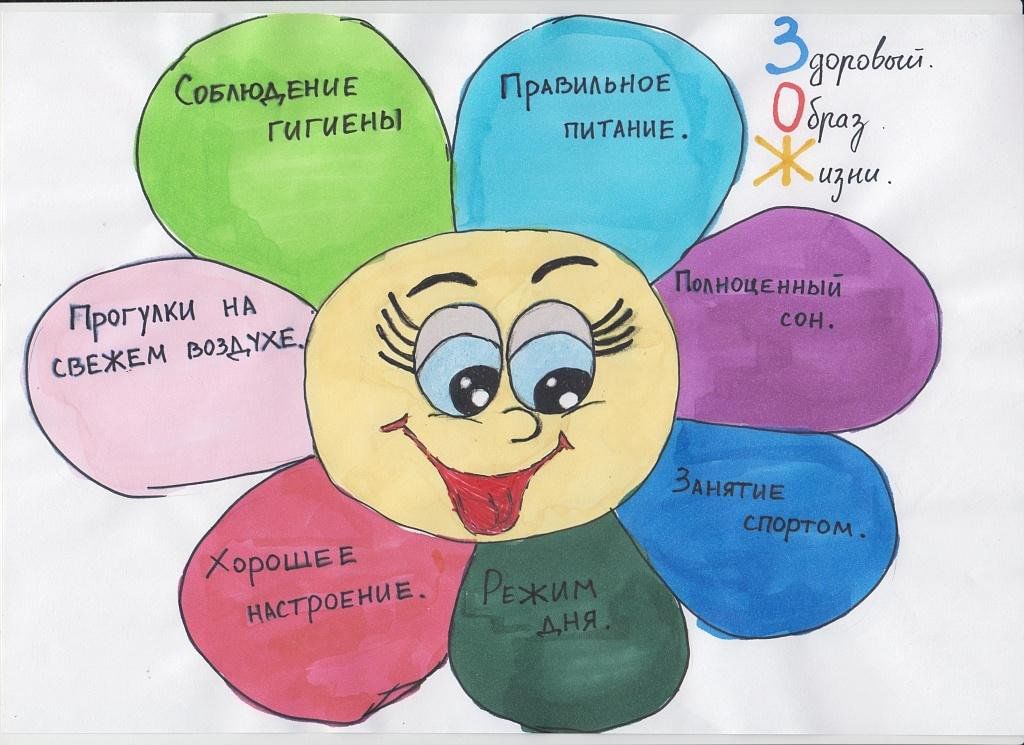 Здоровый.
Образ
Жизни.
Соблюдение
гигиены
Правильное
питание.
Полноценный
сон.
Занятие
спортом.
Режим
дня.
Хорошее
настроение.
Прогулки на
свежем воздухе.